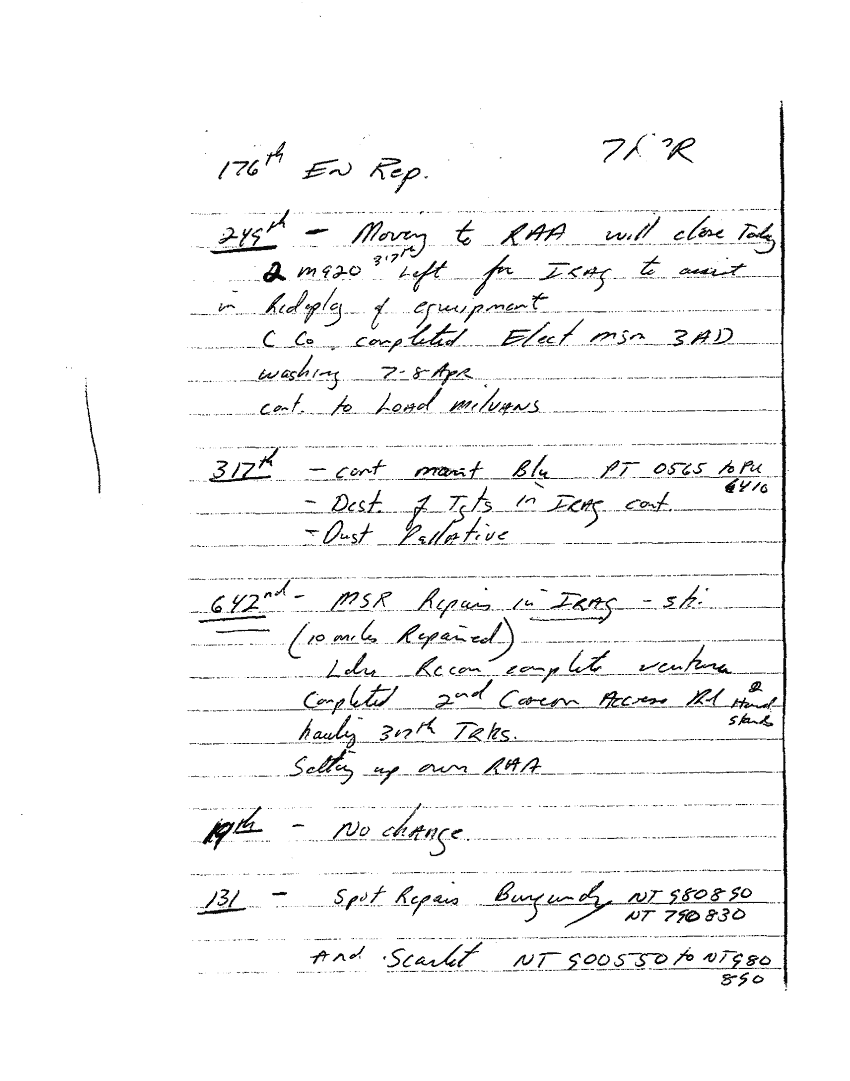 176th EN Rep.
249th - Moving to RAA will close Today
2 M920 317th Left for IRAQ to assist
in Redeploy of equipment
C Co. completed Elect msn 3AD
washing 7-8 Apr
cont. to Load milvans
317th - cont maint Blu PT 0565 to PU
6410
- Dest. of Tgts in IRAQ cont.
- Dust Pallative
642nd - MSR Repairs in IRAQ -
(10 miles Repaired)
Ldrs Recon complete ventura
Completed 2nd Access Rd 2
Hard
stands
hauling 317th TRKs.
Setting up own RAA
19th - No change
131 - Spot Repairs Burgundy NT 980890
NT 790830
And Scarlet NT 900550 to NT 980
890